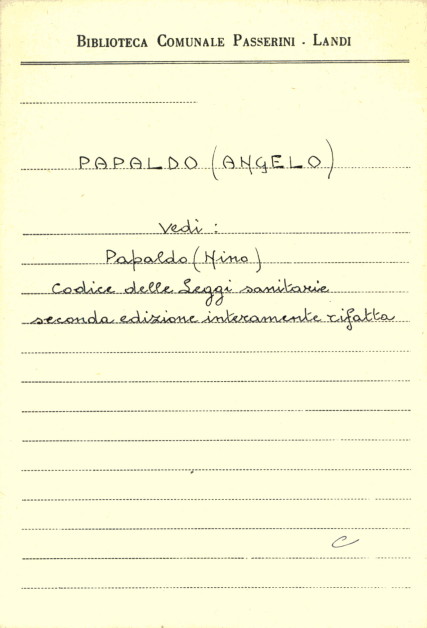 BIBLIOTECA COMUNALE PASSERINI - LANDI
PAPALDO (ANGELO)
Vedi :
Papaldo (Nino)
Codice delle Leggi sanitarie
seconda edizione interamente rifatta
C